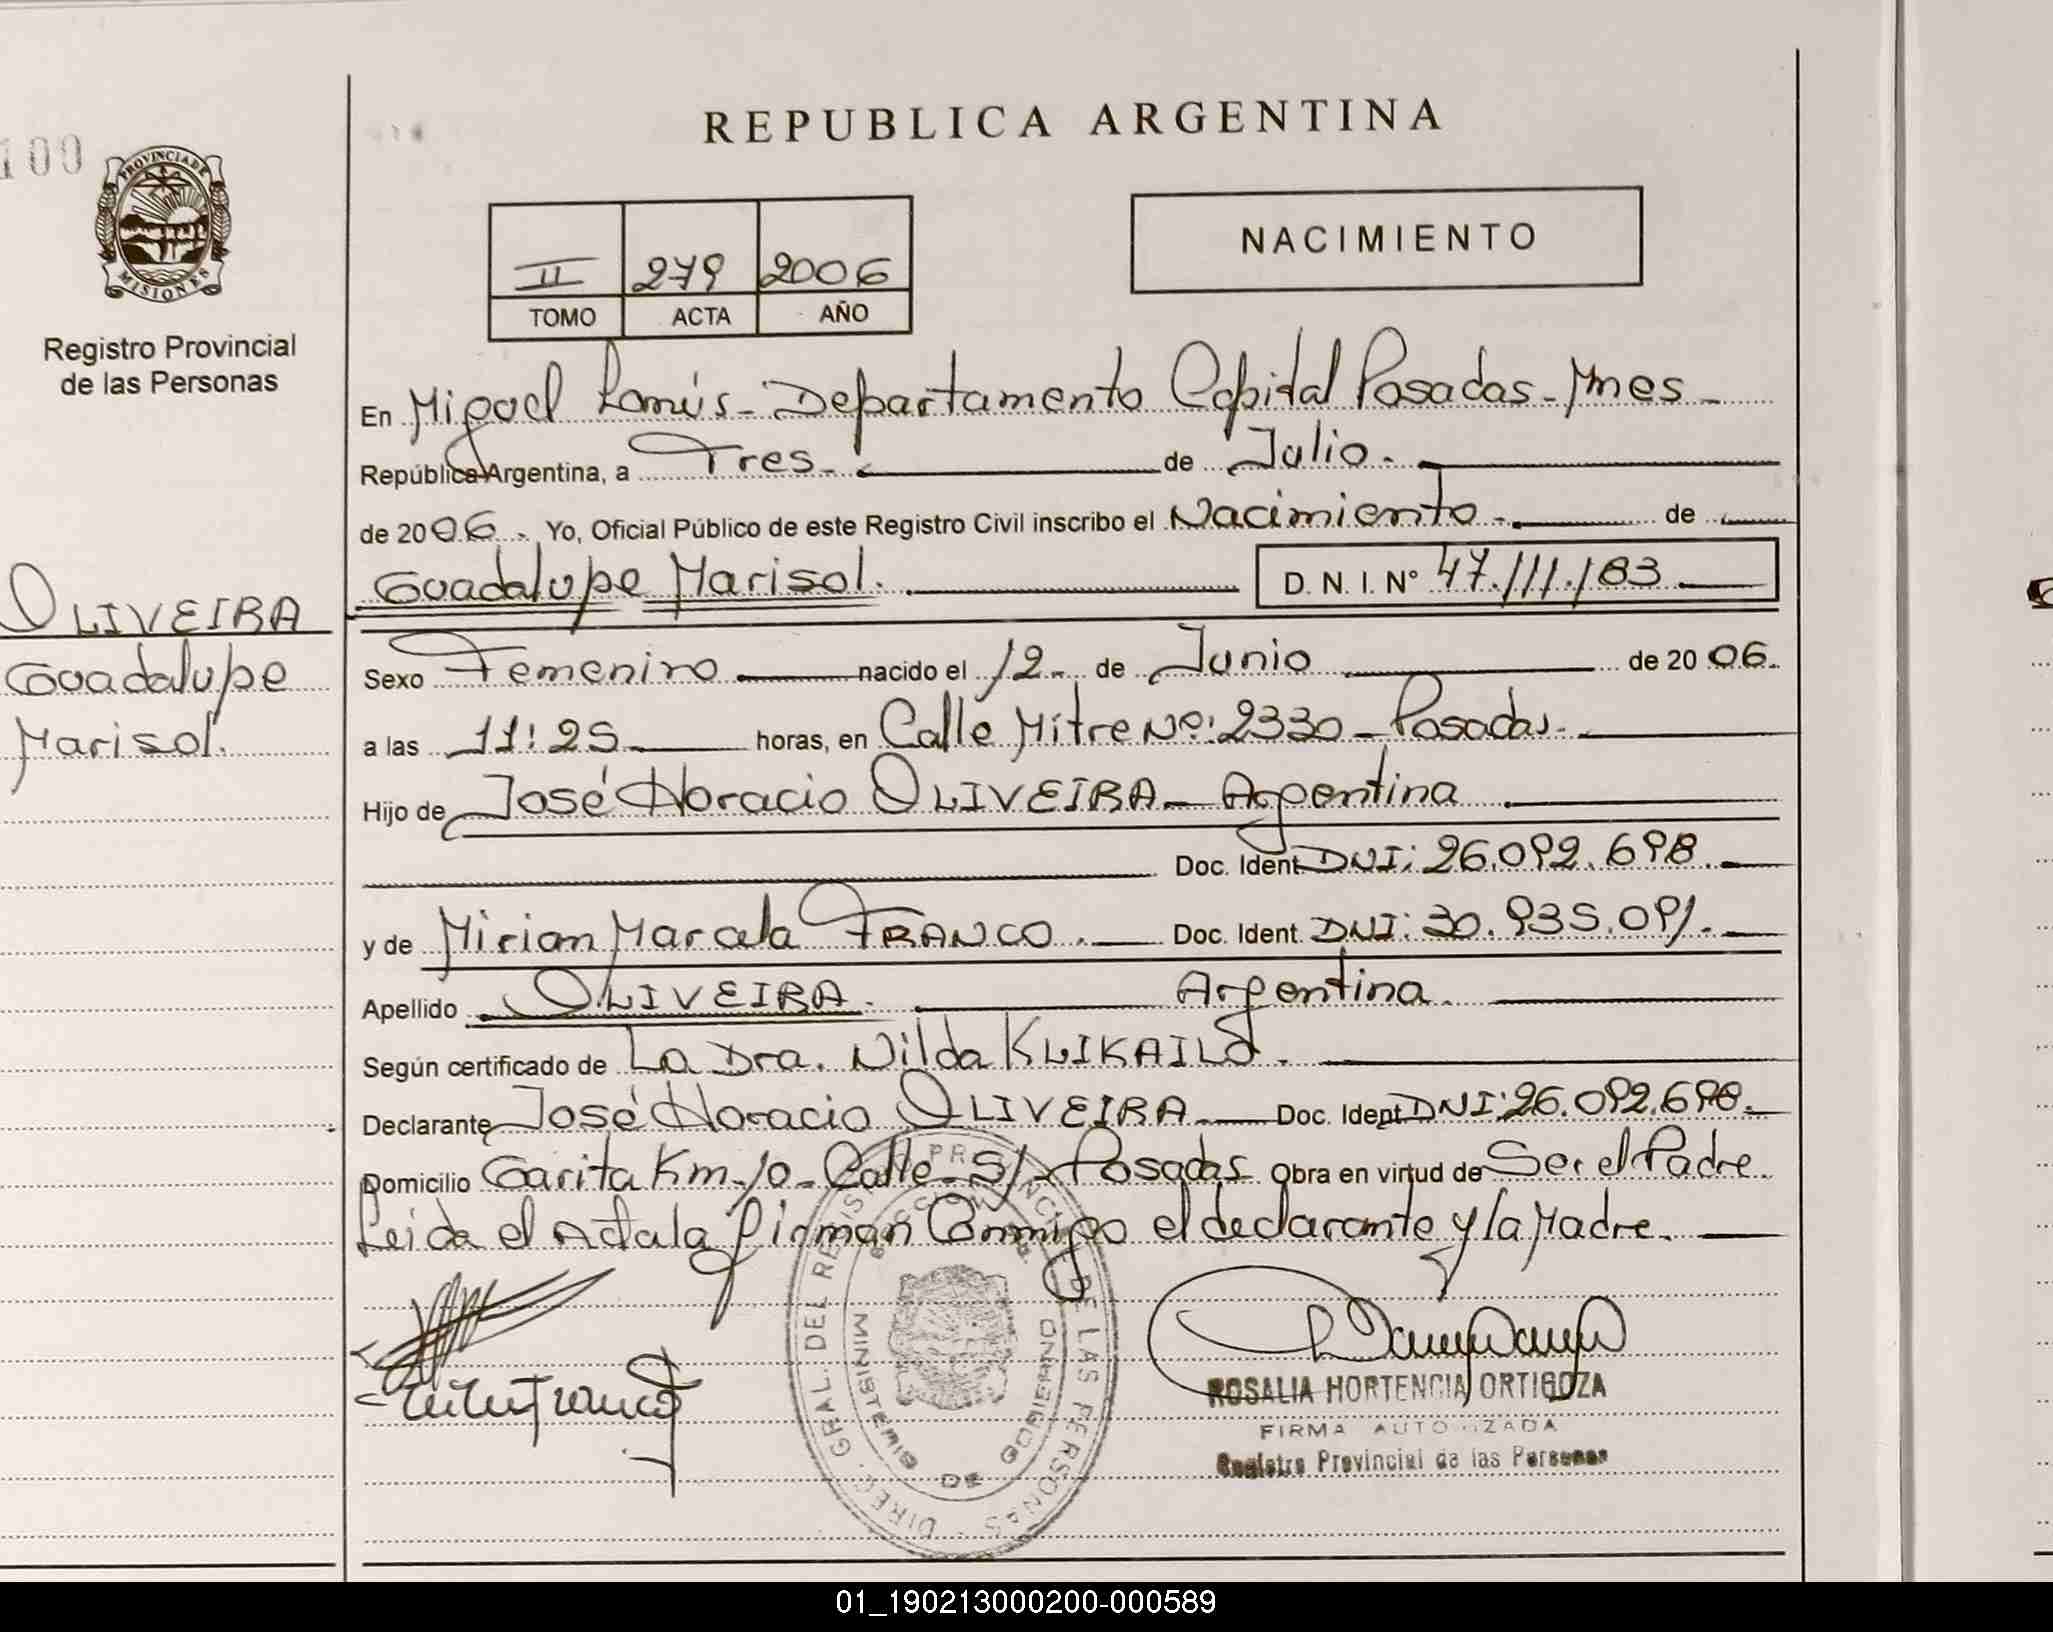 REPUBLICA ARGENTINA
100
PROVINCIA DE
MISIONES
Registro Provincial
de las Personas
NACIMIENTO
II 279 2006
TOMO ACTA AÑO
En Miguel Lanús - Departamento Capital Posadas - Mnes -
República Argentina, a Tres. de Julio.
de 2006. Yo, Oficial Público de este Registro Civil inscribo el Nacimiento. de
Guadalupe Marisol. D. N. I. N° 47.111.183
OLIVEIRA
Guadalupe
Marisol.
Sexo Femenino nacido el 12. de Junio de 2006.
a las 11:25 horas, en Calle Mitre Nº: 2330 - Posadas.
Hijo de José Horacio OLIVEIRA - Argentina
Doc. Ident. DNI: 26.092.698.
y de Mirian Marcela FRANCO. Doc. Ident. DNI: 30.935.091.
Apellido OLIVEIRA. Argentina.
Según certificado de La Dra. Nilda
Declarante José Horacio OLIVEIRA Doc. Ident DNI: 26.092.698.
Domicilio Garita Km. 10 - Calle - S/ Posadas Obra en virtud de Ser el Padre
Leida el Acta la firman Conmigo el declarante y la Madre.
DIREC. GRAL. DEL REGIS PROVINCIAL DE LAS PERSONAS
MINISTERIO DE GOBIERNO
ROSALIA HORTENCIA ORTIGOZA
FIRMA AUTORIZADA
Registro Provincial de las Personas
01_190213000200-000589